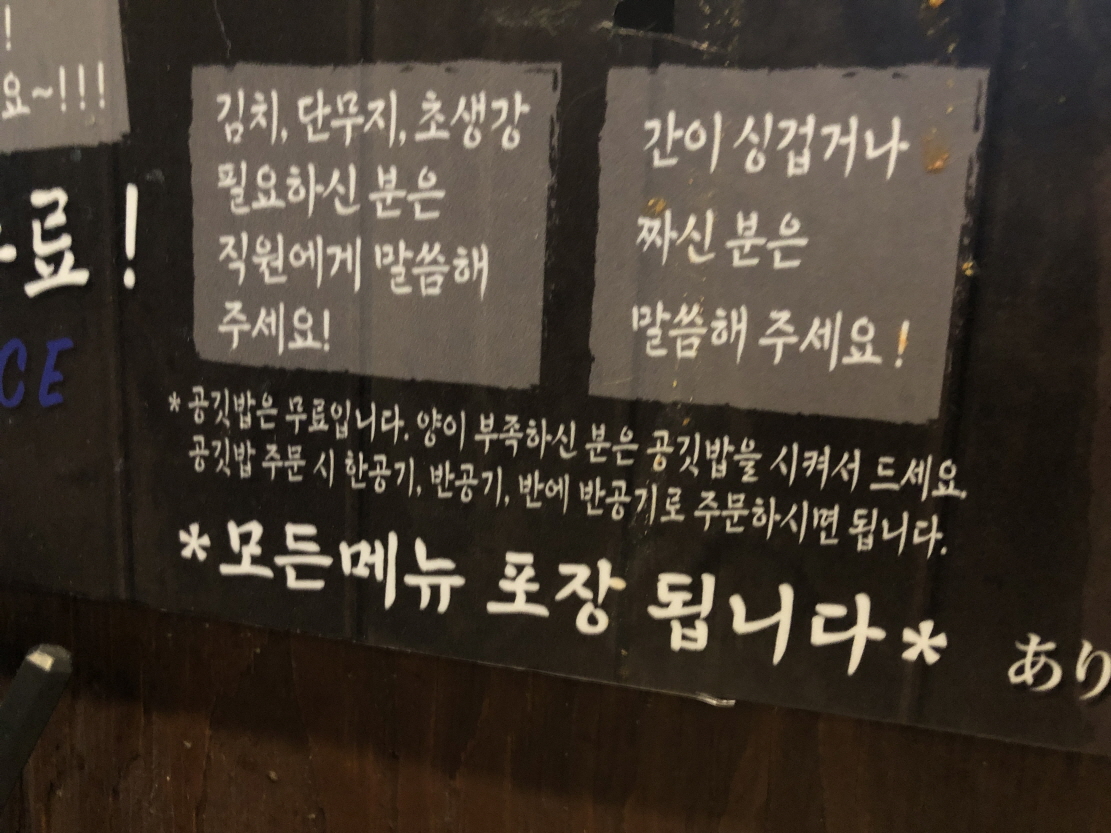 !
요~!!!
료!
CE
김치, 단무지, 초생강
필요하신 분은
직원에게 말씀해
주세요!
간이 싱겁거나
짜신 분은
말씀해 주세요!
*공깃밥은 무료입니다. 양이 부족하신 분은 공깃밥을 시켜서 드세요.
공깃밥 주문 시 한공기, 반공기, 반에 반공기로 주문하시면 됩니다.
*모든메뉴 포장 됩니다*
あり